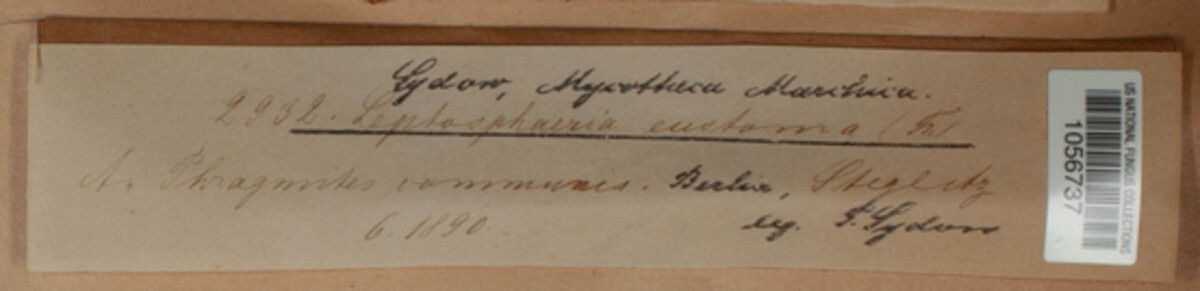 Sydow, Mycotheca Marchica.
2932. Leptosphaeria eustoma (Fr.)
A. Phragmites communis. Berlin, Steglitz
6. 1890. leg. P. Sydow
US NATIONAL FUNGUS COLLECTIONS
1056737